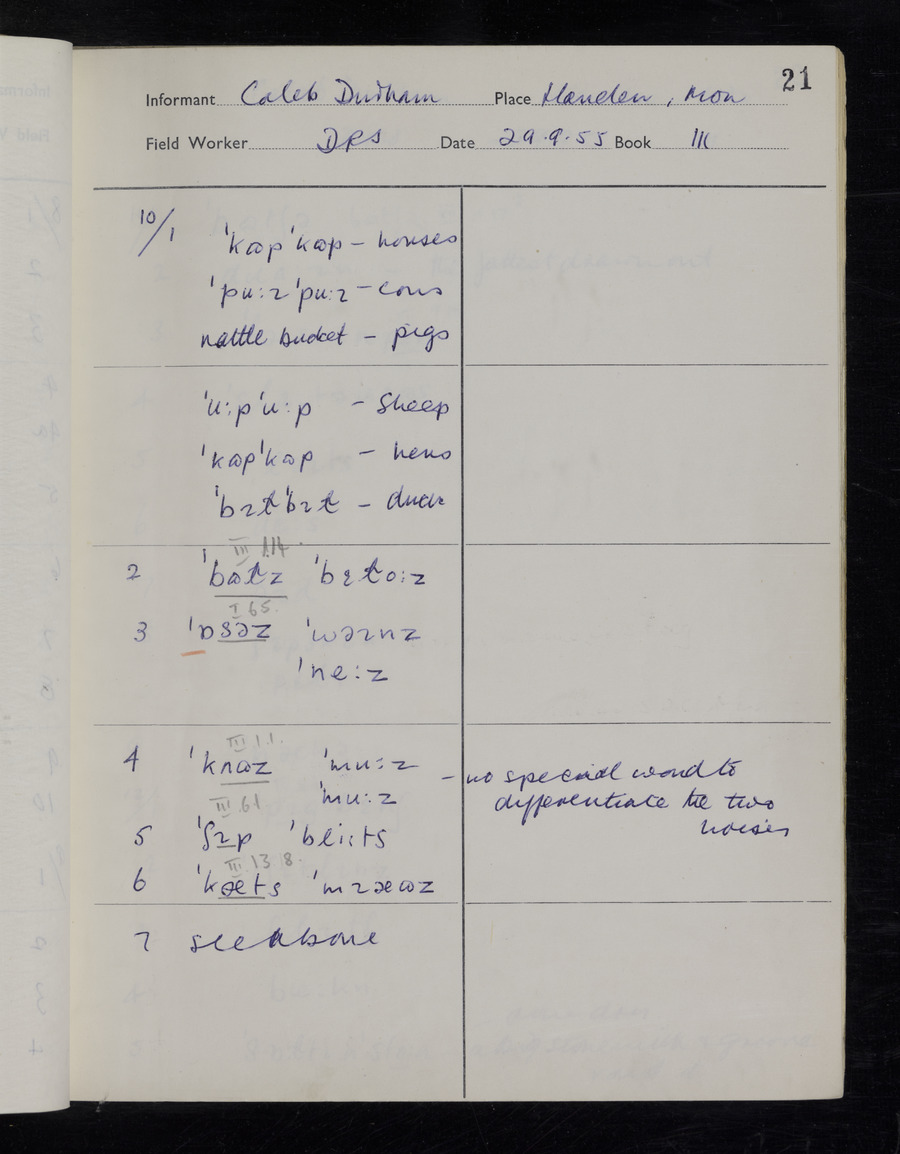 21
Informant Caleb Dudham Place Llanden, Mon
Field Worker DRS Date 29.9.55 Book III
10/1 ˈkɷpˈkɷp – houses
ˈpuːɹˈpuːɹ – cows
rattle bucket – pigs
ˈuːpˈuːp – Sheep
ˈkɷpˈkɷp – hens
ˈbɪtˈbɪt –
III
2
I 65.
3 ˈneːz
III 1.1.
4 ˈmuːz
ˈmuːz – no special word to
differentiate the two
noises
III.61
5 ˈʃɪp ˈbliːts
III 13 8.
6 ˈkæts ˈmɪæɷz
7 see above